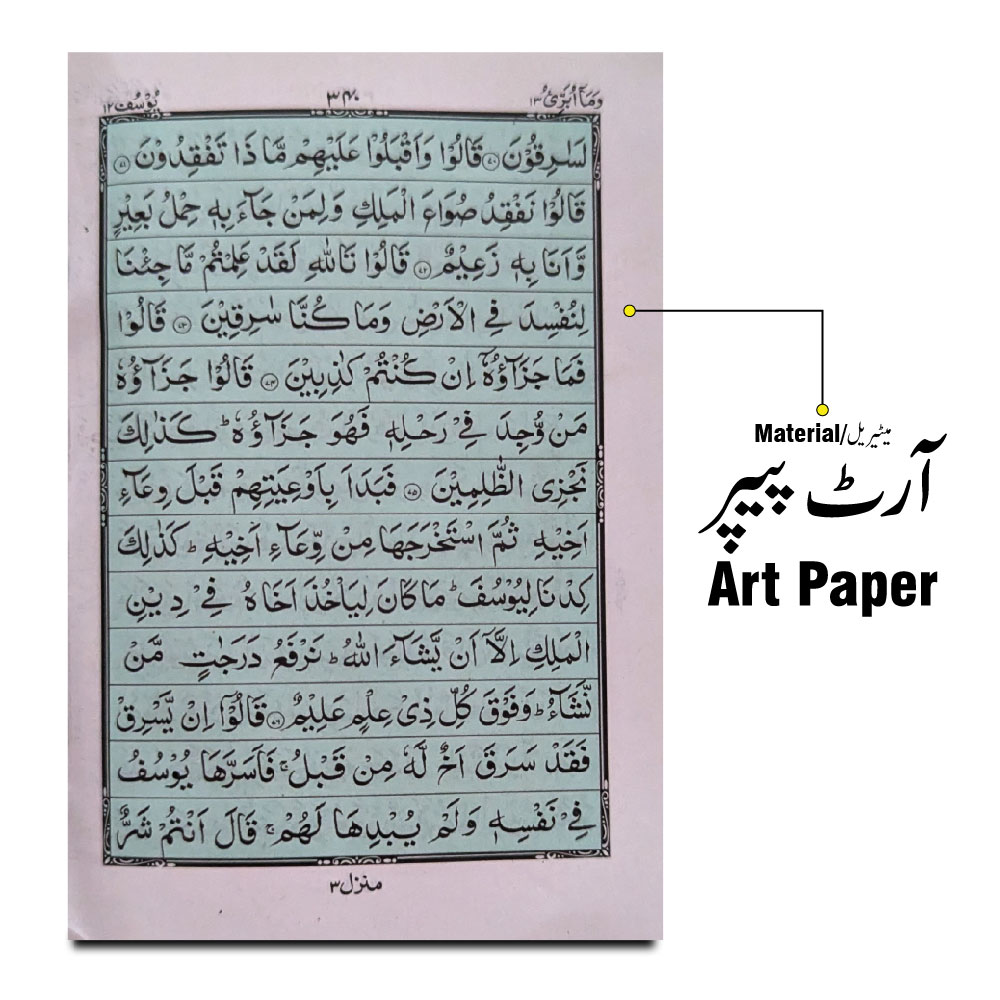 وَمَآ اُبَرِّئُ ١٣
٣٤٠
يُوْسُف ١٢
لَسٰرِقُوْنَ ۝٧٠ قَالُوْا وَاَقْبَلُوْا عَلَيْهِمْ مَّا ذَا تَفْقِدُوْنَ ۝٧١
قَالُوْا نَفْقِدُ صُوَاعَ الْمَلِكِ وَلِمَنْ جَآءَ بِهٖ حِمْلُ بَعِيْرٍ
وَّاَنَا بِهٖ زَعِيْمٌ ۝٧٢ قَالُوْا تَاللّٰهِ لَقَدْ عَلِمْتُمْ مَّا جِئْنَا
لِنُفْسِدَ فِي الْاَرْضِ وَمَا كُنَّا سٰرِقِيْنَ ۝٧٣ قَالُوْا
فَمَا جَزَآؤُهٗٓ اِنْ كُنْتُمْ كٰذِبِيْنَ ۝٧٤ قَالُوْا جَزَآؤُهٗ
مَنْ وُّجِدَ فِيْ رَحْلِهٖ فَهُوَ جَزَآؤُهٗ ؕ كَذٰلِكَ
نَجْزِي الظّٰلِمِيْنَ ۝٧٥ فَبَدَاَ بِاَوْعِيَتِهِمْ قَبْلَ وِعَآءِ
اَخِيْهِ ثُمَّ اسْتَخْرَجَهَا مِنْ وِّعَآءِ اَخِيْهِ ؕ كَذٰلِكَ
كِدْنَا لِيُوْسُفَ ؕ مَا كَانَ لِيَاْخُذَ اَخَاهُ فِيْ دِيْنِ
الْمَلِكِ اِلَّآ اَنْ يَّشَآءَ اللّٰهُ ؕ نَرْفَعُ دَرَجٰتٍ مَّنْ
نَّشَآءُ ؕ وَفَوْقَ كُلِّ ذِيْ عِلْمٍ عَلِيْمٌ ۝٧٦ قَالُوْٓا اِنْ يَّسْرِقْ
فَقَدْ سَرَقَ اَخٌ لَّهٗ مِنْ قَبْلُ ۚ فَاَسَرَّهَا يُوْسُفُ
فِيْ نَفْسِهٖ وَلَمْ يُبْدِهَا لَهُمْ ۚ قَالَ اَنْتُمْ شَرٌّ
منزل ٣
Material/میٹیریل
آرٹ پیپر
Art Paper